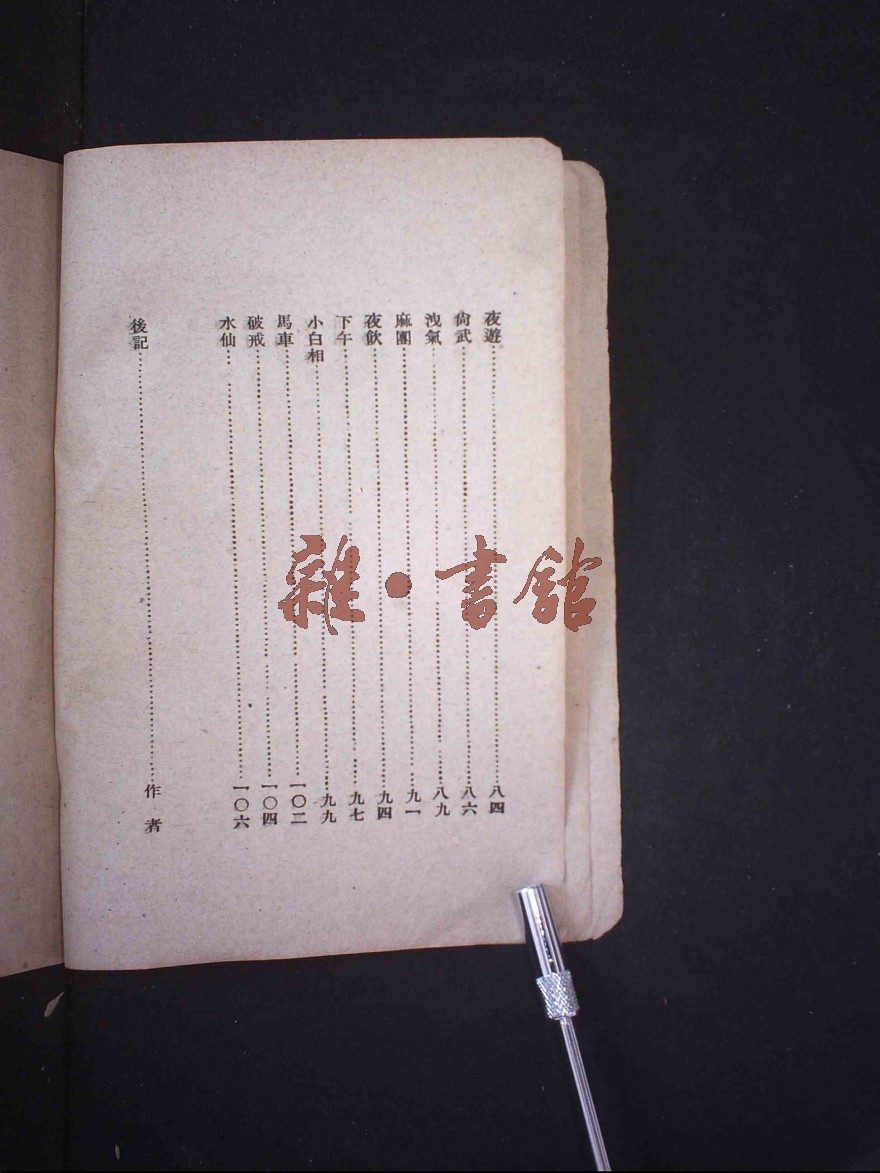 夜遊……八四
尙武……八六
洩氣……八九
麻團……九一
夜飲……九四
下午……九七
小白相……九九
馬車……一〇二
破戒……一〇四
水仙……一〇六
後記……作者
雜·書館